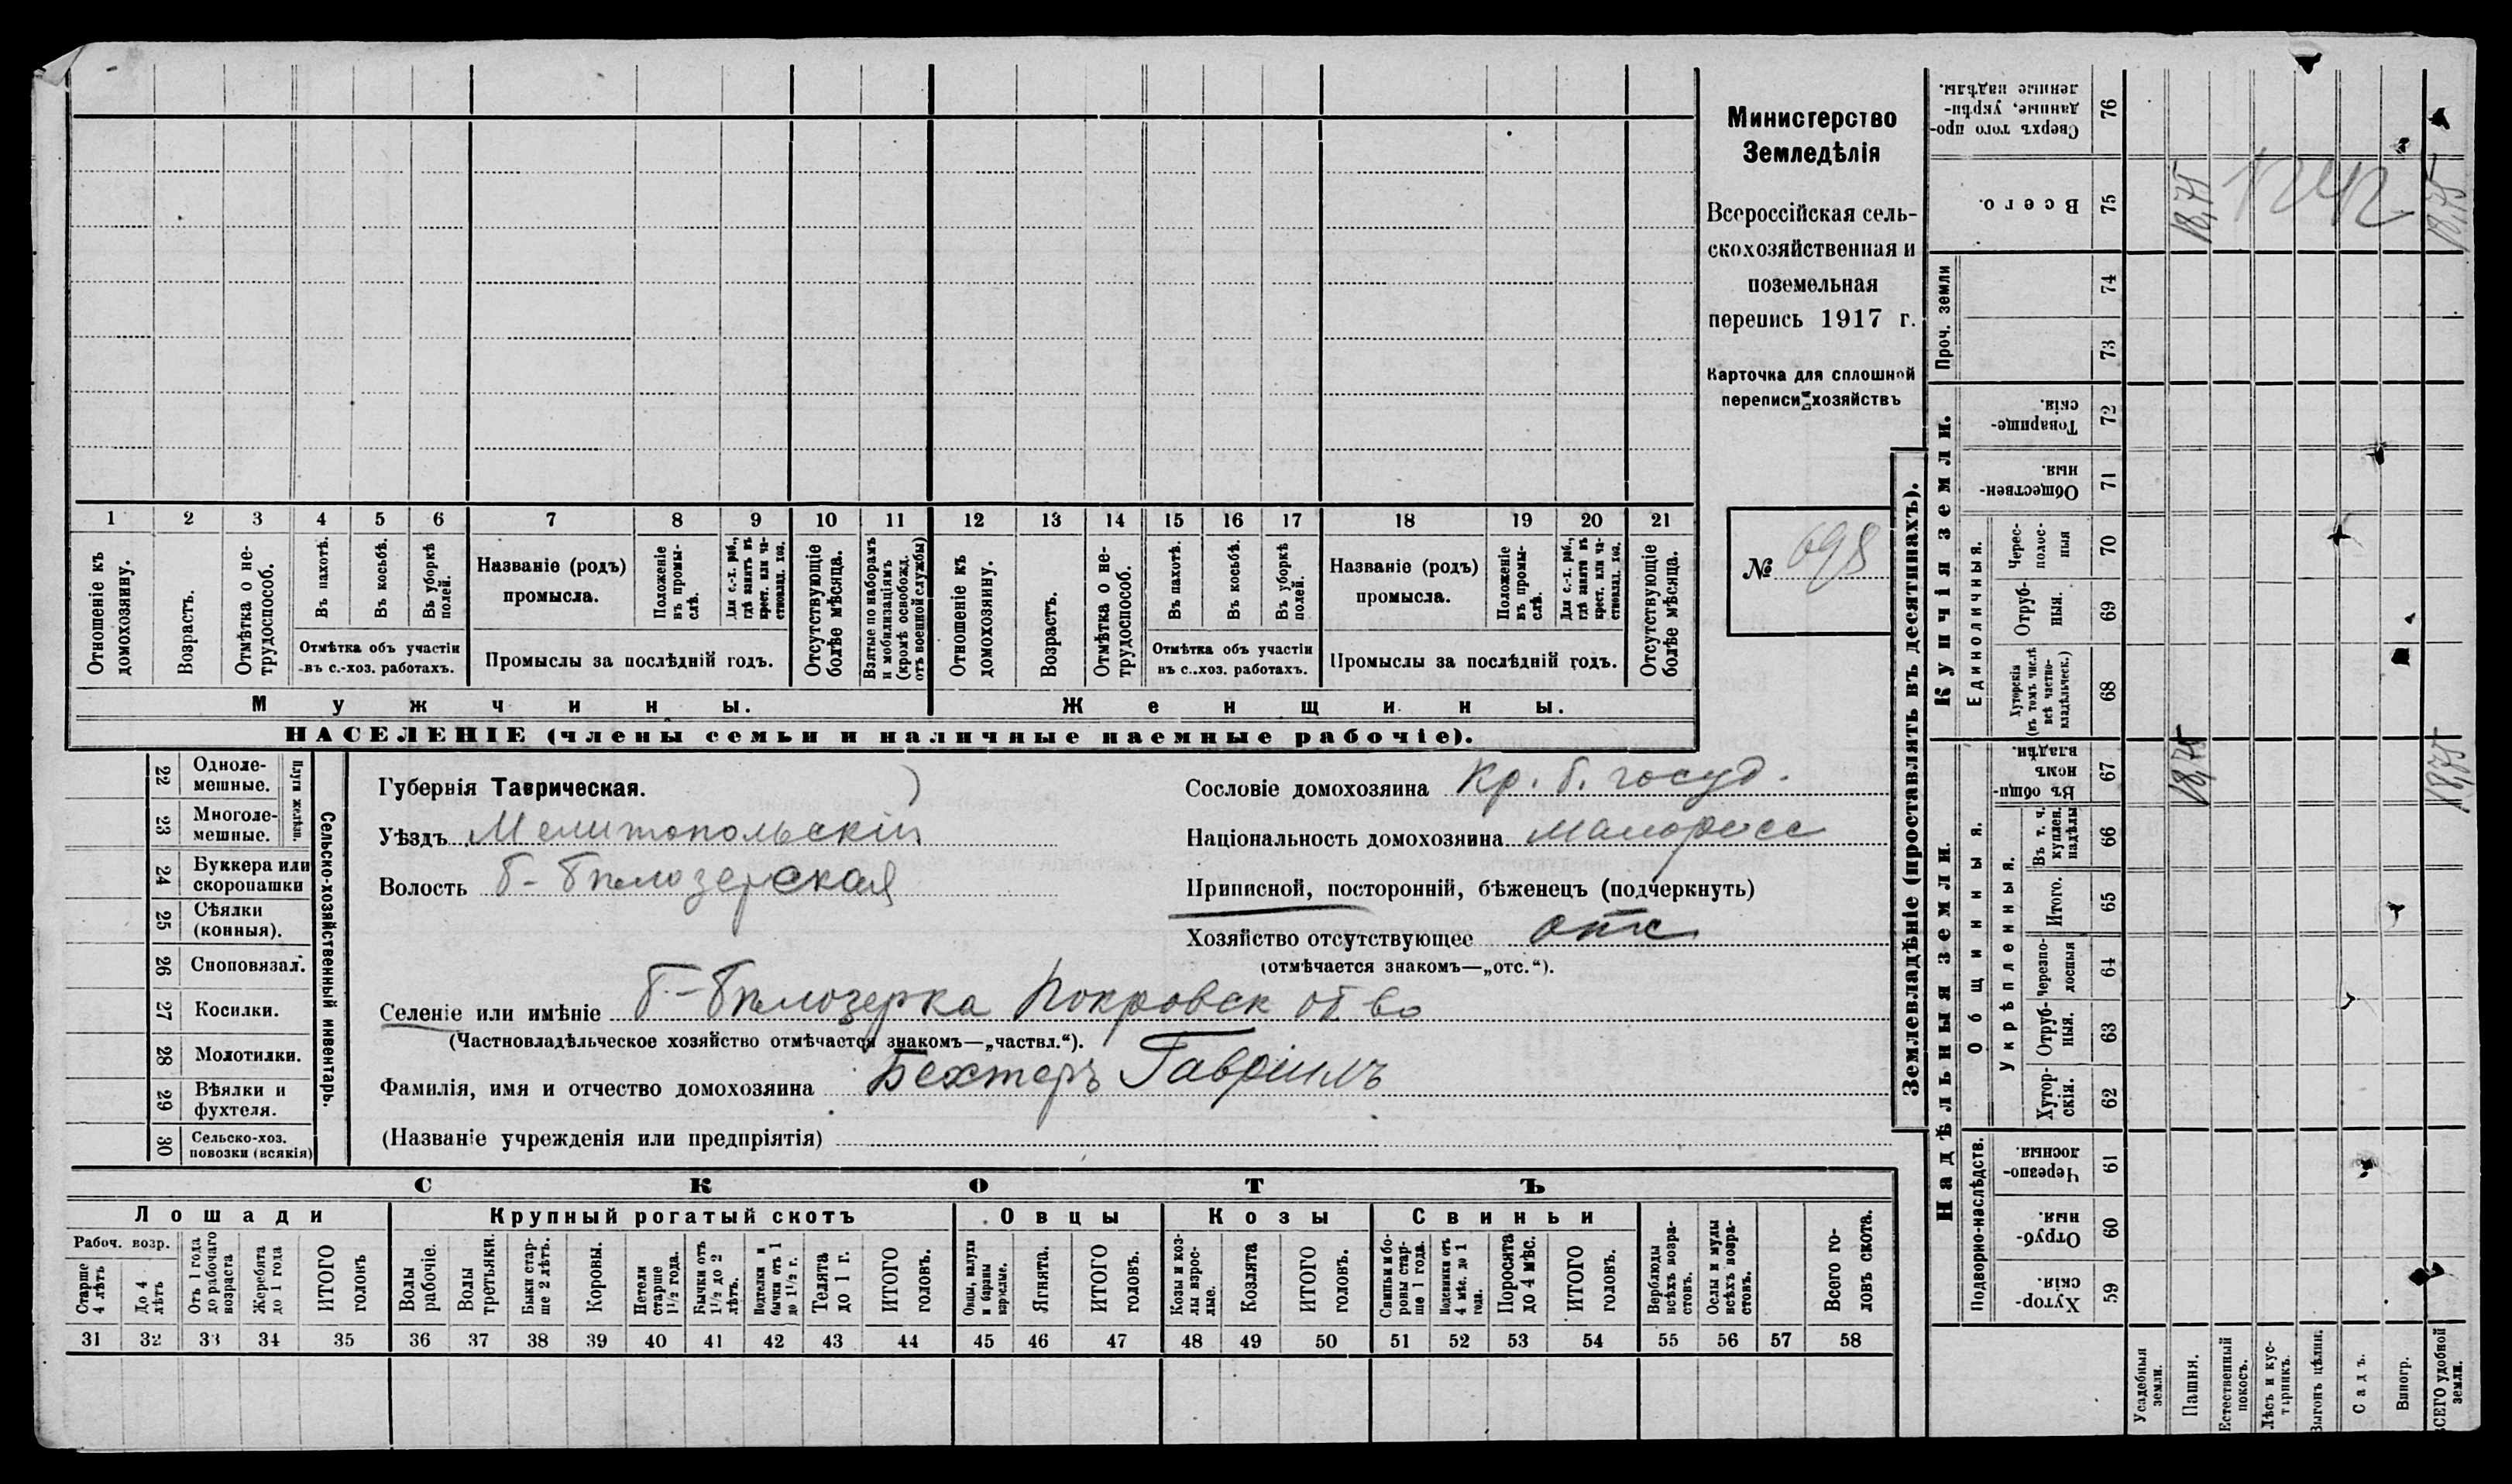 Министерство
Земледѣлія
Всероссійская сель-
скохозяйственная и
поземельная
перепись 1917 г.
Карточка для сплошной
переписи хозяйствъ
№ 698
1 2 3 4 5 6 7 8 9 10 11 12 13 14 15 16 17 18 19 20 21
Отношеніе къ домохозяину.
Возрастъ.
Отмѣтка о не-трудоспособ.
Въ пахотѣ.
Въ косьбѣ.
Въ уборкѣ полей.
Отмѣтка объ участіи
въ с.-хоз. работахъ.
Названіе (родъ)
промысла.
Положеніе въ промы-слѣ.
Для с.-х. раб., гдѣ занятъ въ крест. или ча-стновлад. хоз.
Промыслы за послѣдній годъ.
Отсутствующіе болѣе мѣсяца.
Взятые по наборамъ и мобилизаціямъ (кромѣ освобожд. отъ военной службы)
Отношеніе къ домохозяину.
Возрастъ.
Отмѣтка о не-трудоспособ.
Въ пахотѣ.
Въ косьбѣ.
Въ уборкѣ полей.
Отмѣтка объ участіи
въ с..хоз. работахъ.
Названіе (родъ)
промысла.
Положеніе въ промы-слѣ.
Для с.-х. раб., гдѣ занята въ крест. или ча-стновлад. хоз.
Промыслы за послѣдній годъ.
Отсутствующіе болѣе мѣсяца.
Мужчины.
Женщины.
НАСЕЛЕНІЕ (члены семьи и наличные наемные рабочіе).
Сельско-хозяйственный инвентарь.
Плуги желѣзн.
22 Одноле-
мешные.
23 Многоле-
мешные.
24 Буккера или
скоропашки
25 Сѣялки
(конныя).
26 Сноповязал.
27 Косилки.
28 Молотилки.
29 Вѣялки и
фухтеля.
30 Сельско-хоз.
повозки (всякія)
Губернія Таврическая.
Уѣздъ Мелитопольскій
Волость Б-Бѣлозерская
Сословіе домохозяина Кр. б. госуд.
Національность домохозяина Малоросс
Приписной, посторонній, бѣженецъ (подчеркнуть)
Хозяйство отсутствующее отс
(отмѣчается знакомъ—„отс.“).
Селеніе или имѣніе Б-Бѣлозерка Покровск об-во
(Частновладѣльческое хозяйство отмѣчается знакомъ—„частвл.“).
Фамилія, имя и отчество домохозяина Бехтеръ Гавріилъ
(Названіе учрежденія или предпріятія)
СКОТЪ
Лошади
Крупный рогатый скотъ
Овцы
Козы
Свиньи
Рабоч. возр.
Старше 4 лѣтъ
До 4 лѣтъ
Отъ 1 года до рабочаго возраста
Жеребята до 1 года
ИТОГО головъ
Волы рабочіе.
Волы третьяки.
Быки стар-ше 2 лѣтъ.
Коровы.
Нетели старше 1½ года.
Бычки отъ 1½ до 2 лѣтъ.
Подтелки и бычки отъ 1 до 1½ г.
Телята до 1 г.
ИТОГО головъ.
Овцы, валухи и бараны взрослые.
Ягнята.
ИТОГО головъ.
Козы и коз-лы взрос-лые.
Козлята
ИТОГО головъ.
Свиньи и бо-ровы стар-ше 1 года.
Подсвинки отъ 4 мѣс. до 1 года.
Поросята до 4 мѣс.
ИТОГО головъ.
Верблюды всѣхъ возра-стовъ.
Ослы и мулы всѣхъ возра-стовъ.
Всего го-ловъ скота.
31 32 33 34 35 36 37 38 39 40 41 42 43 44 45 46 47 48 49 50 51 52 53 54 55 56 57 58
Землевладѣніе (проставлять въ десятинахъ).
Надѣльныя земли.
Купчія земли.
Проч. земли
Подворно-наслѣдств.
Общинныя.
Укрѣпленныя.
Единоличныя.
59 Хутор-скія.
60 Отруб-ныя.
61 Черезпо-лосныя.
62 Хутор-скія.
63 Отруб-ныя.
64 Черезпо-лосныя
65 Итого.
66 Въ т. ч. куплен. надѣлы
67 Въ общи-номъ владѣн.
68 Хуторскія (въ томъ числѣ всѣ частно-владѣльческ.)
69 Отруб-ныя.
70 Черес-полос-ныя
71 Обществен-ныя.
72 Товарище-скія.
73
74
75 Всего.
76 Сверхъ того про-данные, укрѣп-ленные надѣлы.
Усадебныя земли.
Пашня.
Естественный покосъ.
Лѣсъ и кус-тарникъ.
Выгонъ цѣлин.
Садъ.
Виногр.
ВСЕГО удобной земли.
18,75
18,75
18,75
18,75